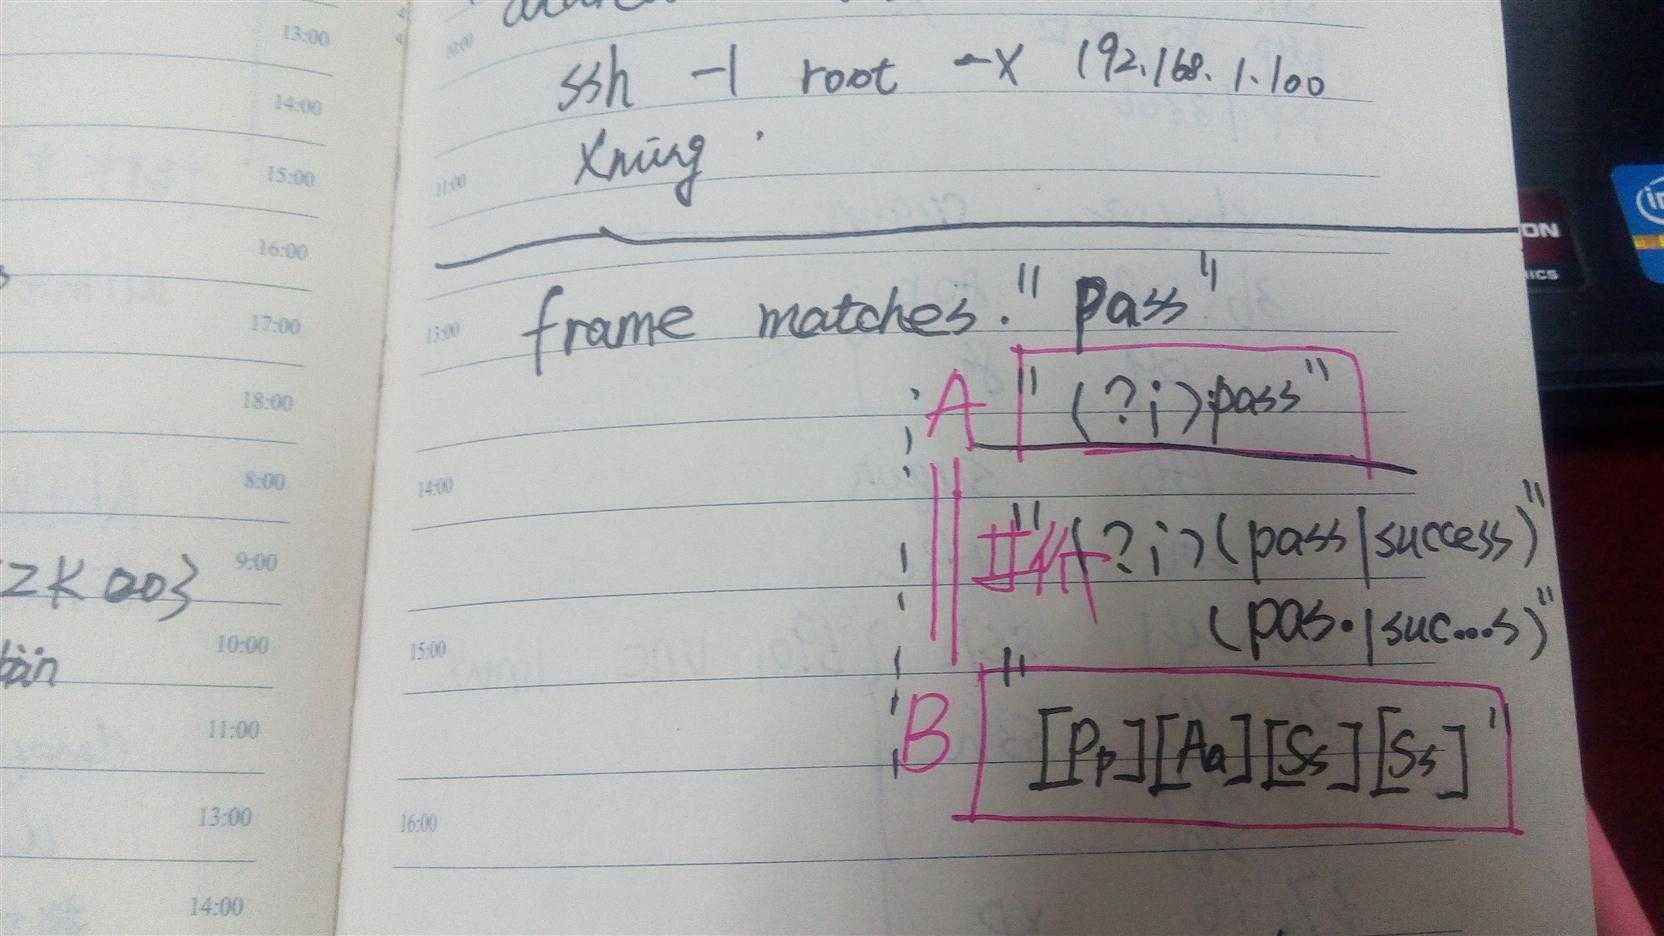 13:00
14:00
15:00
16:00
17:00
18:00
8:00
9:00
ZK003
10:00
11:00
13:00
14:00
10:00
ssh -l root -X 192.168.1.100
11:00
Xming
13:00
frame matches. "pass"
A "(?i)pass"
14:00
"(?i)(pass|success)"
15:00
(pas.|suc...s)"
B "[Pp][Aa][Ss][Ss]'
16:00
ON
ICS